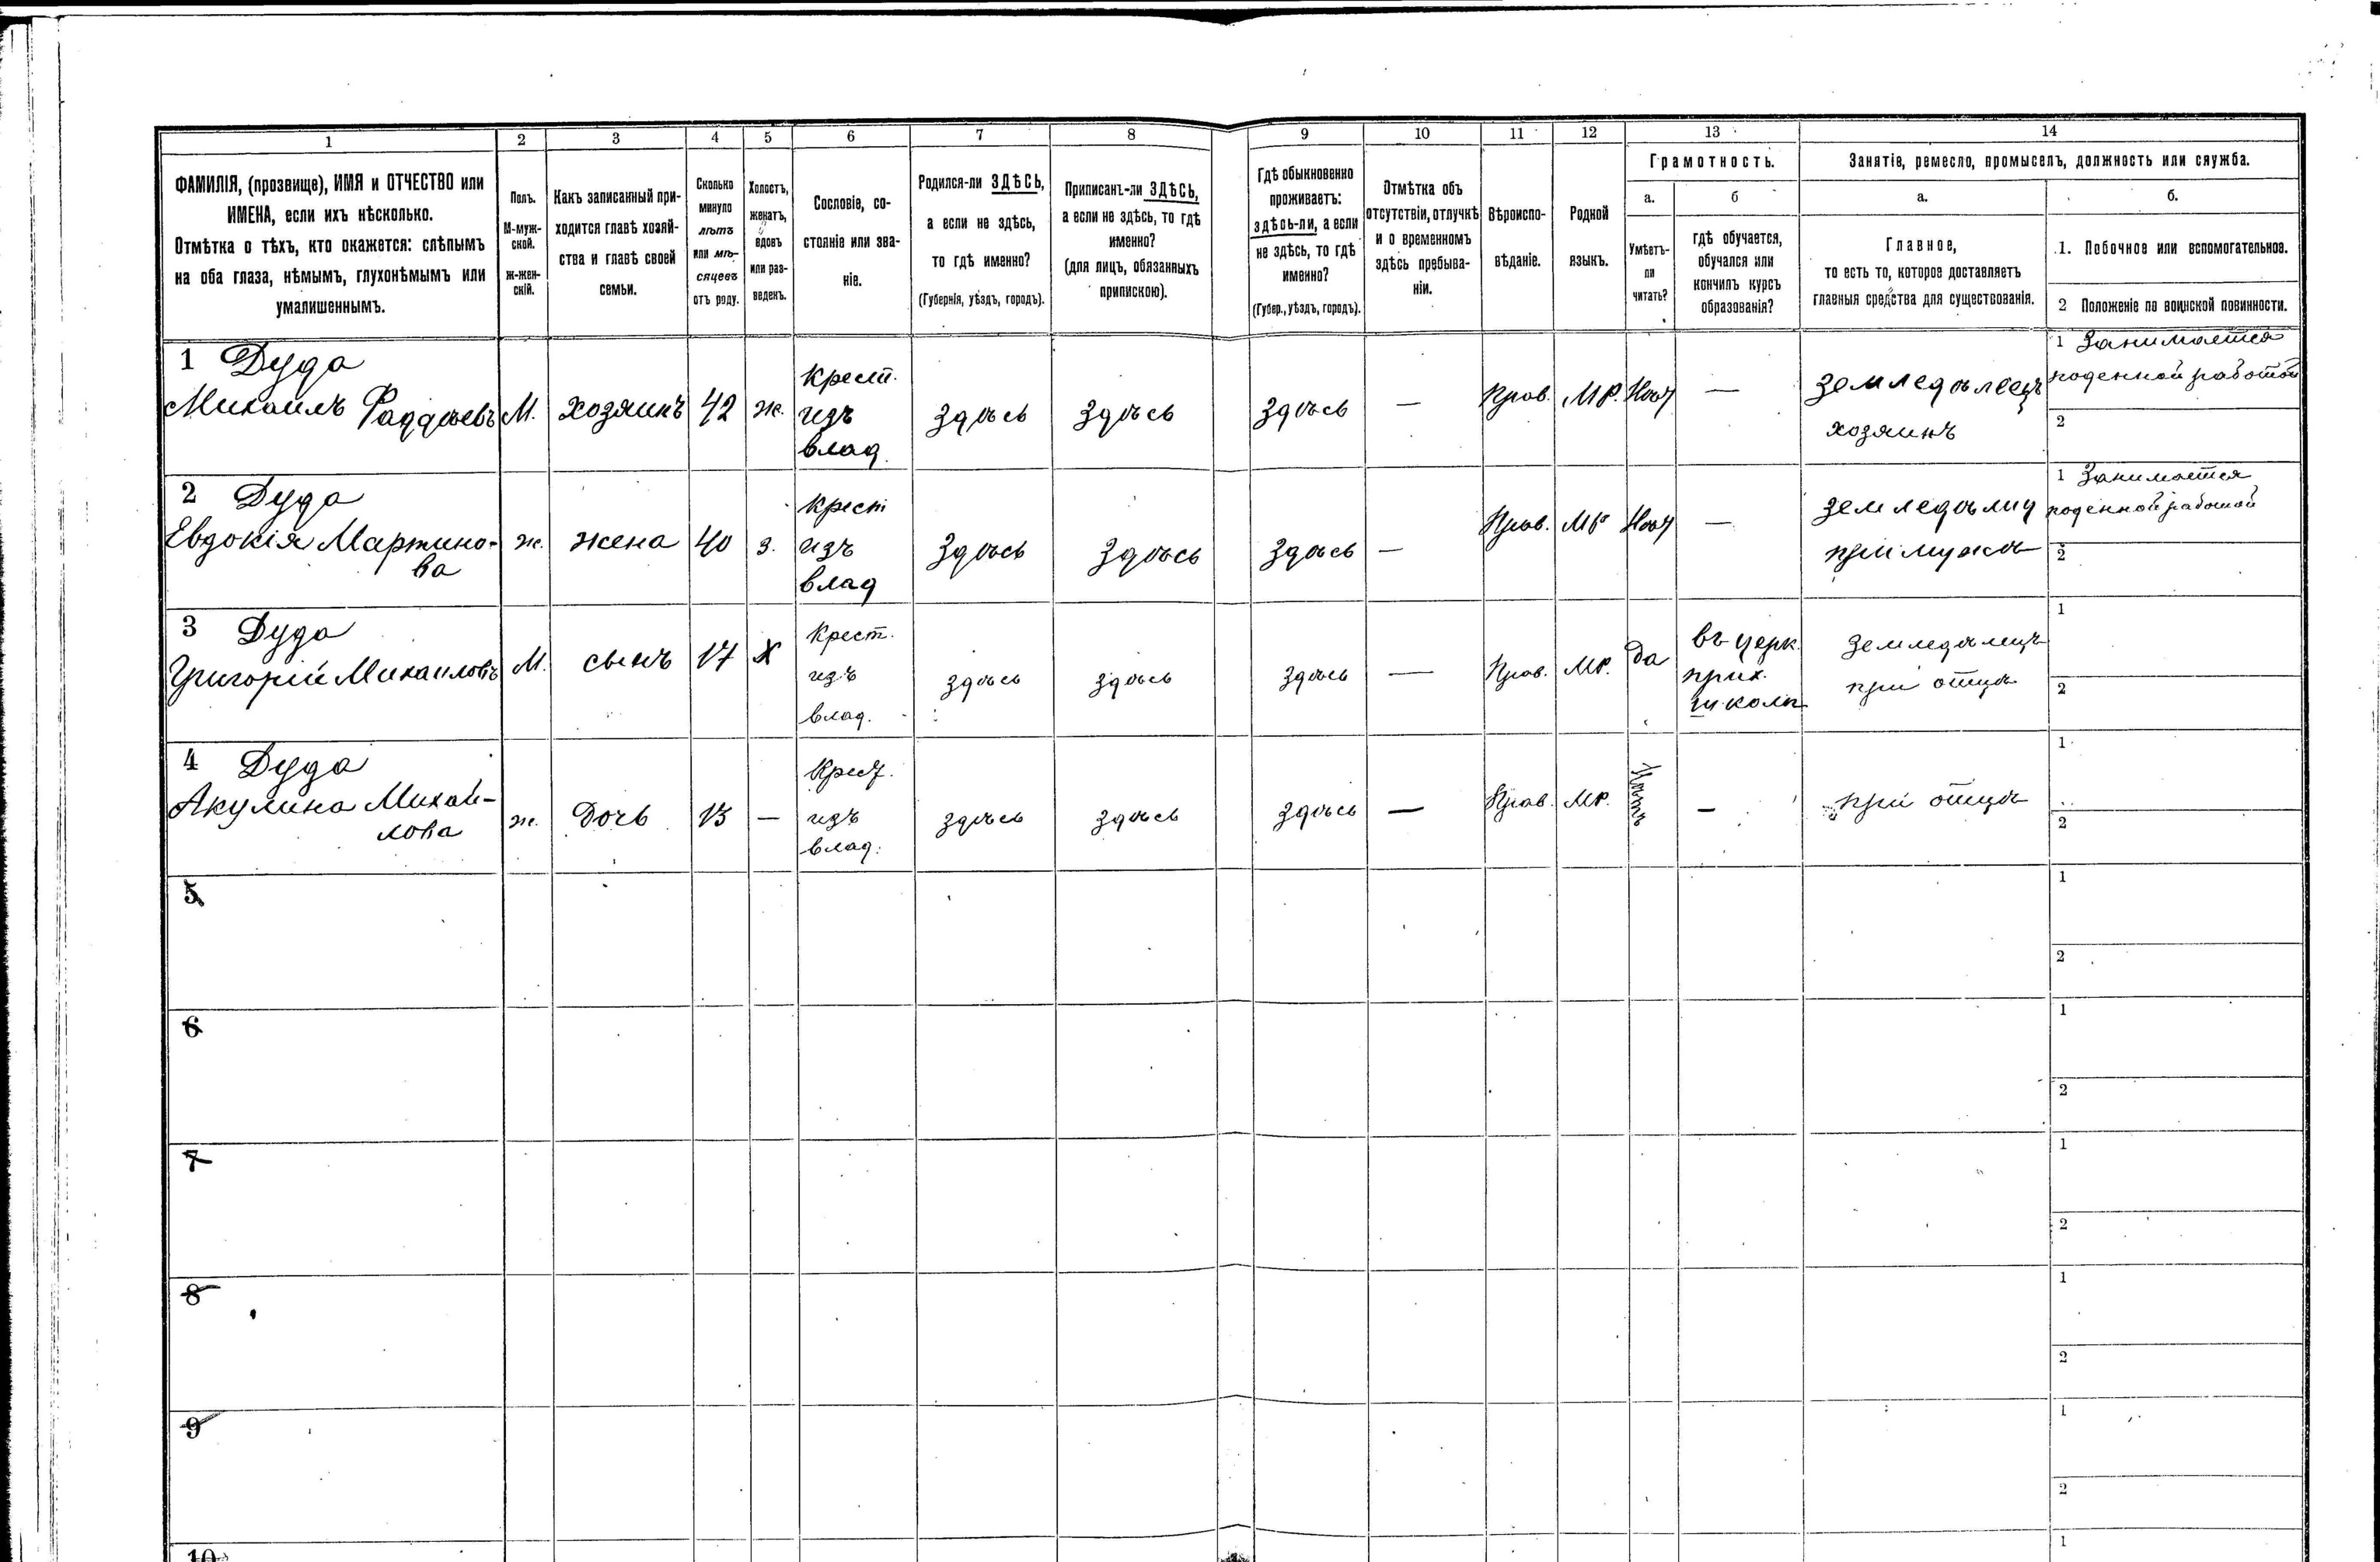 1 2 3 4 5 6 7 8 9 10 11 12 13 14
ФАМИЛІЯ, (прозвище), ИМЯ и ОТЧЕСТВО или
ИМЕНА, если ихъ нѣсколько.
Отмѣтка о тѣхъ, кто окажется: слѣпымъ
на оба глаза, нѣмымъ, глухонѣмымъ или
умалишеннымъ.
Полъ.
М-муж-
ской.
ж-жен-
скій.
Какъ записанный при-
ходится главѣ хозяй-
ства и главѣ своей
семьи.
Сколько
минуло
лѣтъ
или мѣ-
сяцевъ
отъ роду.
Холостъ,
женатъ,
вдовъ
или раз-
веденъ.
Сословіе, со-
стояніе или зва-
ніе.
Родился-ли ЗДѢСЬ,
а если не здѣсь,
то гдѣ именно?
(Губернія, уѣздъ, городъ).
Приписанъ-ли ЗДѢСЬ,
а если не здѣсь, то гдѣ
именно?
(для лицъ, обязанныхъ
припискою).
Гдѣ обыкновенно
проживаетъ:
здѣсь-ли, а если
не здѣсь, то гдѣ
именно?
(Губер., уѣздъ, городъ).
Отмѣтка объ
отсутствіи, отлучкѣ
и о временномъ
здѣсь пребыва-
ніи.
Вѣроиспо-
вѣданіе.
Родной
языкъ.
Грамотность.
а.
Умѣетъ-
ли
читать?
б
гдѣ обучается,
обучался или
кончилъ курсъ
образованія?
Занятіе, ремесло, промыселъ, должность или служба.
а.
Главное,
то есть то, которое доставляетъ
главныя средства для существованія.
б.
1. Побочное или вспомогательное.
2 Положеніе по воинской повинности.
1 Дуда
Михаилъ Фаддѣевъ
М.
хозяинъ
42
ж.
крест.
изъ
влад.
здѣсь
здѣсь
здѣсь
—
Прав.
МР.
Нѣт
—
земледѣлецъ
хозяинъ
1 Занимается
поденной работой
2
2 Дуда
Евдокія Мартино-
ва
ж.
жена
40
з.
крест
изъ
влад
здѣсь
здѣсь
здѣсь
—
Прав.
МР
Нѣт
—
земледѣлица
при мужѣ
1 Занимается
поденной работой
2
3 Дуда
Григорій Михаиловъ
М.
сынъ
17
Х
Крест.
изъ
влад.
здѣсь
здѣсь
здѣсь
—
Прав.
МР.
Да
въ церк.
прих.
школѣ
земледѣлецъ
при отцѣ
1
2
4 Дуда
Акулина Михаи-
лова
ж.
Дочь
13
—
Крест.
изъ
влад.
здѣсь
здѣсь
здѣсь
—
Прав.
МР.
Нѣтъ
—
при отцѣ
1
2
5
1
2
6
1
2
7
1
2
8
1
2
9
1
2
10
1